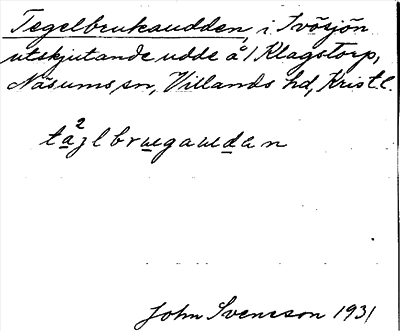 Tegelbruksudden, i Ivösjön
utskjutande udde å 1 Klagstorp,
Näsums sn, Villands hd, Krist.l.
John Svensson 1931